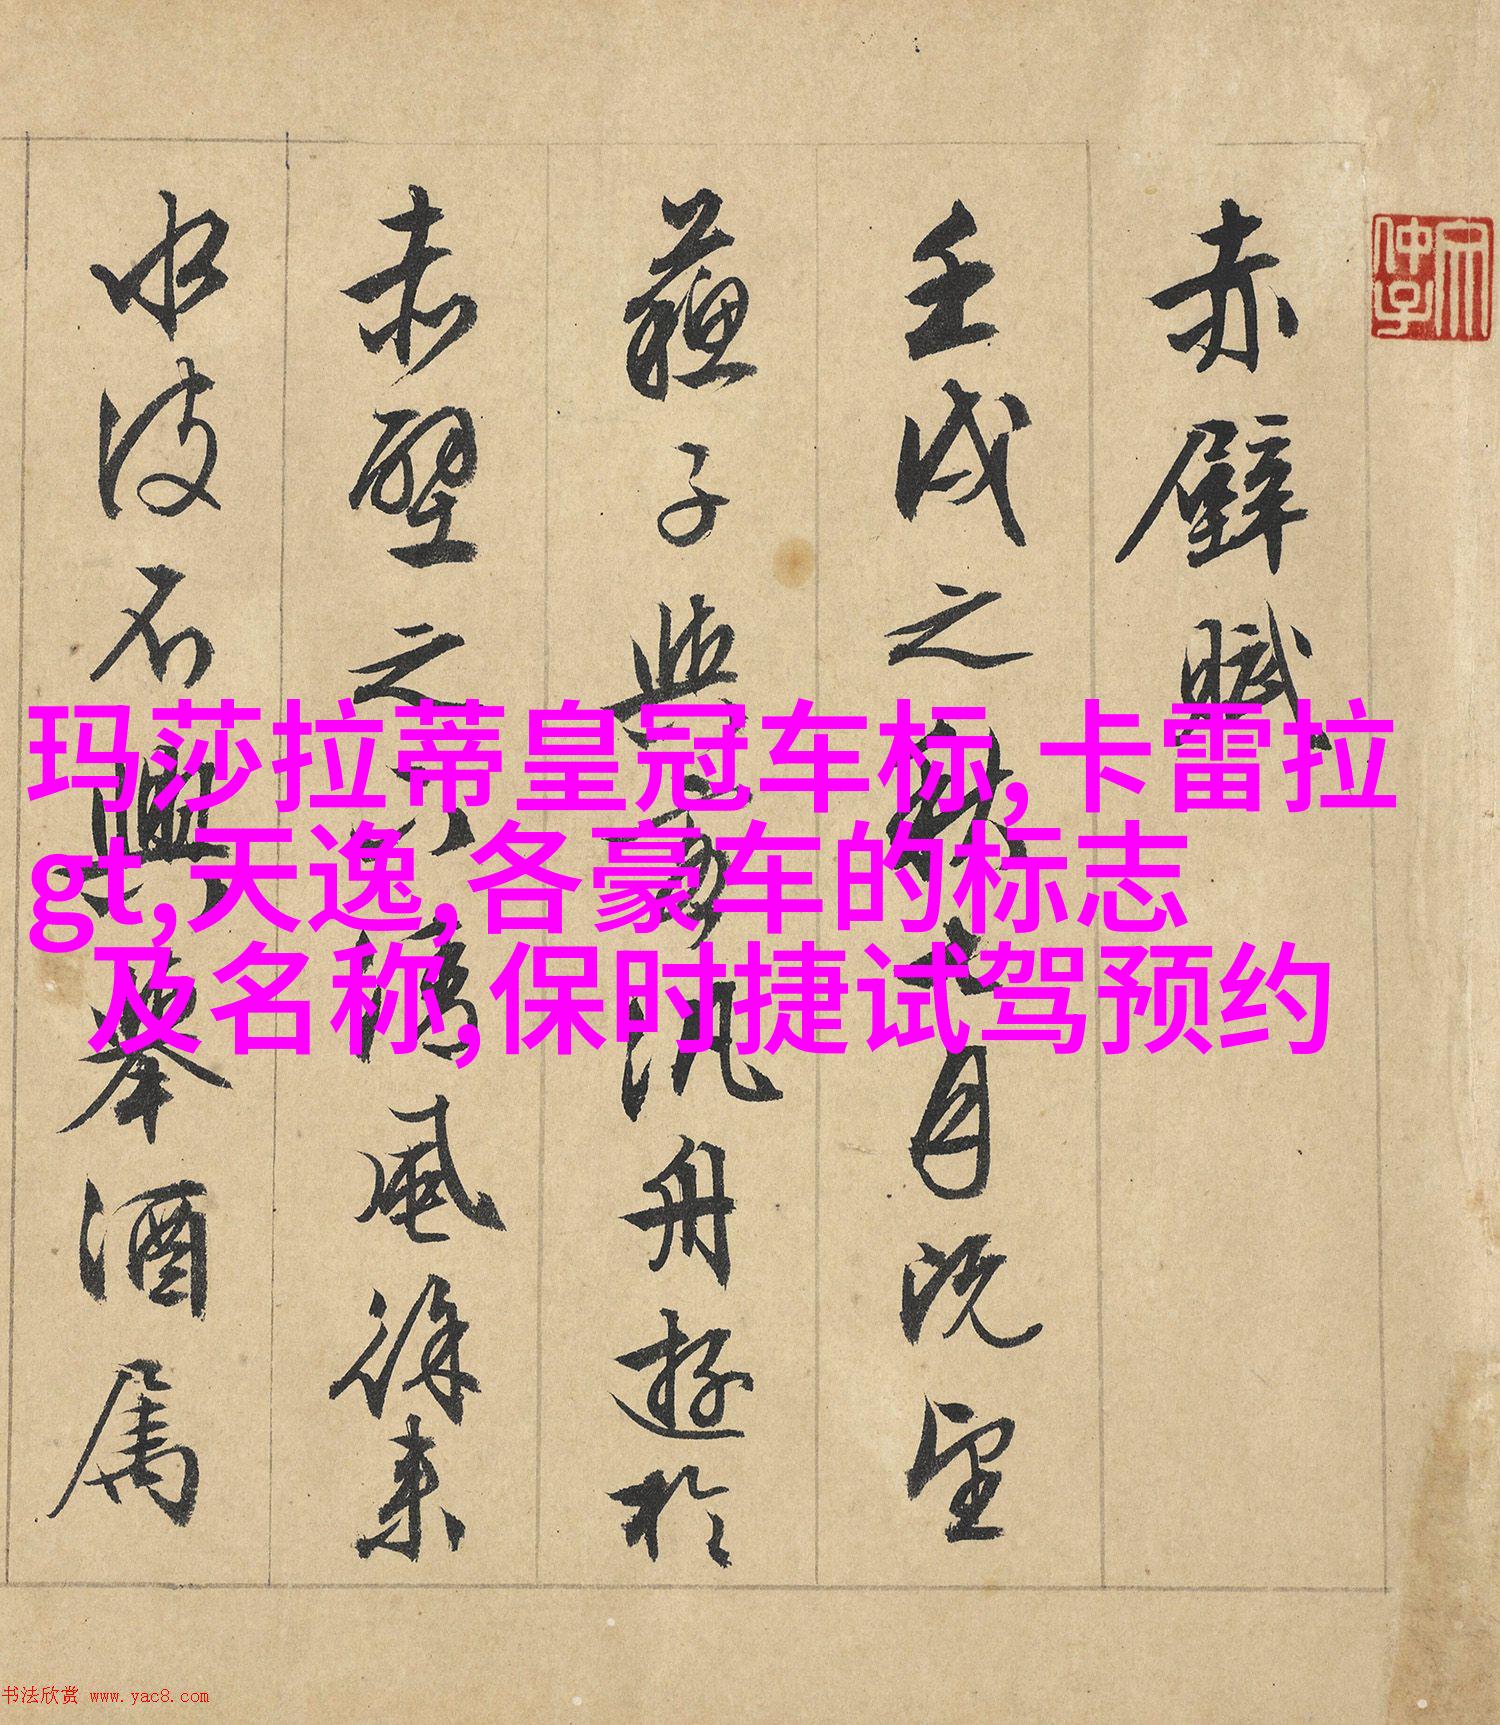 赤壁賦
壬戌之秋七月既望
蘇子與客汎舟遊於
赤壁之下清風徐来
水波不興舉酒属
玛莎拉蒂皇冠车标,卡雷拉
gt,天逸,各豪车的标志
及名称,保时捷试驾预约
书法欣赏 www.yac8.com